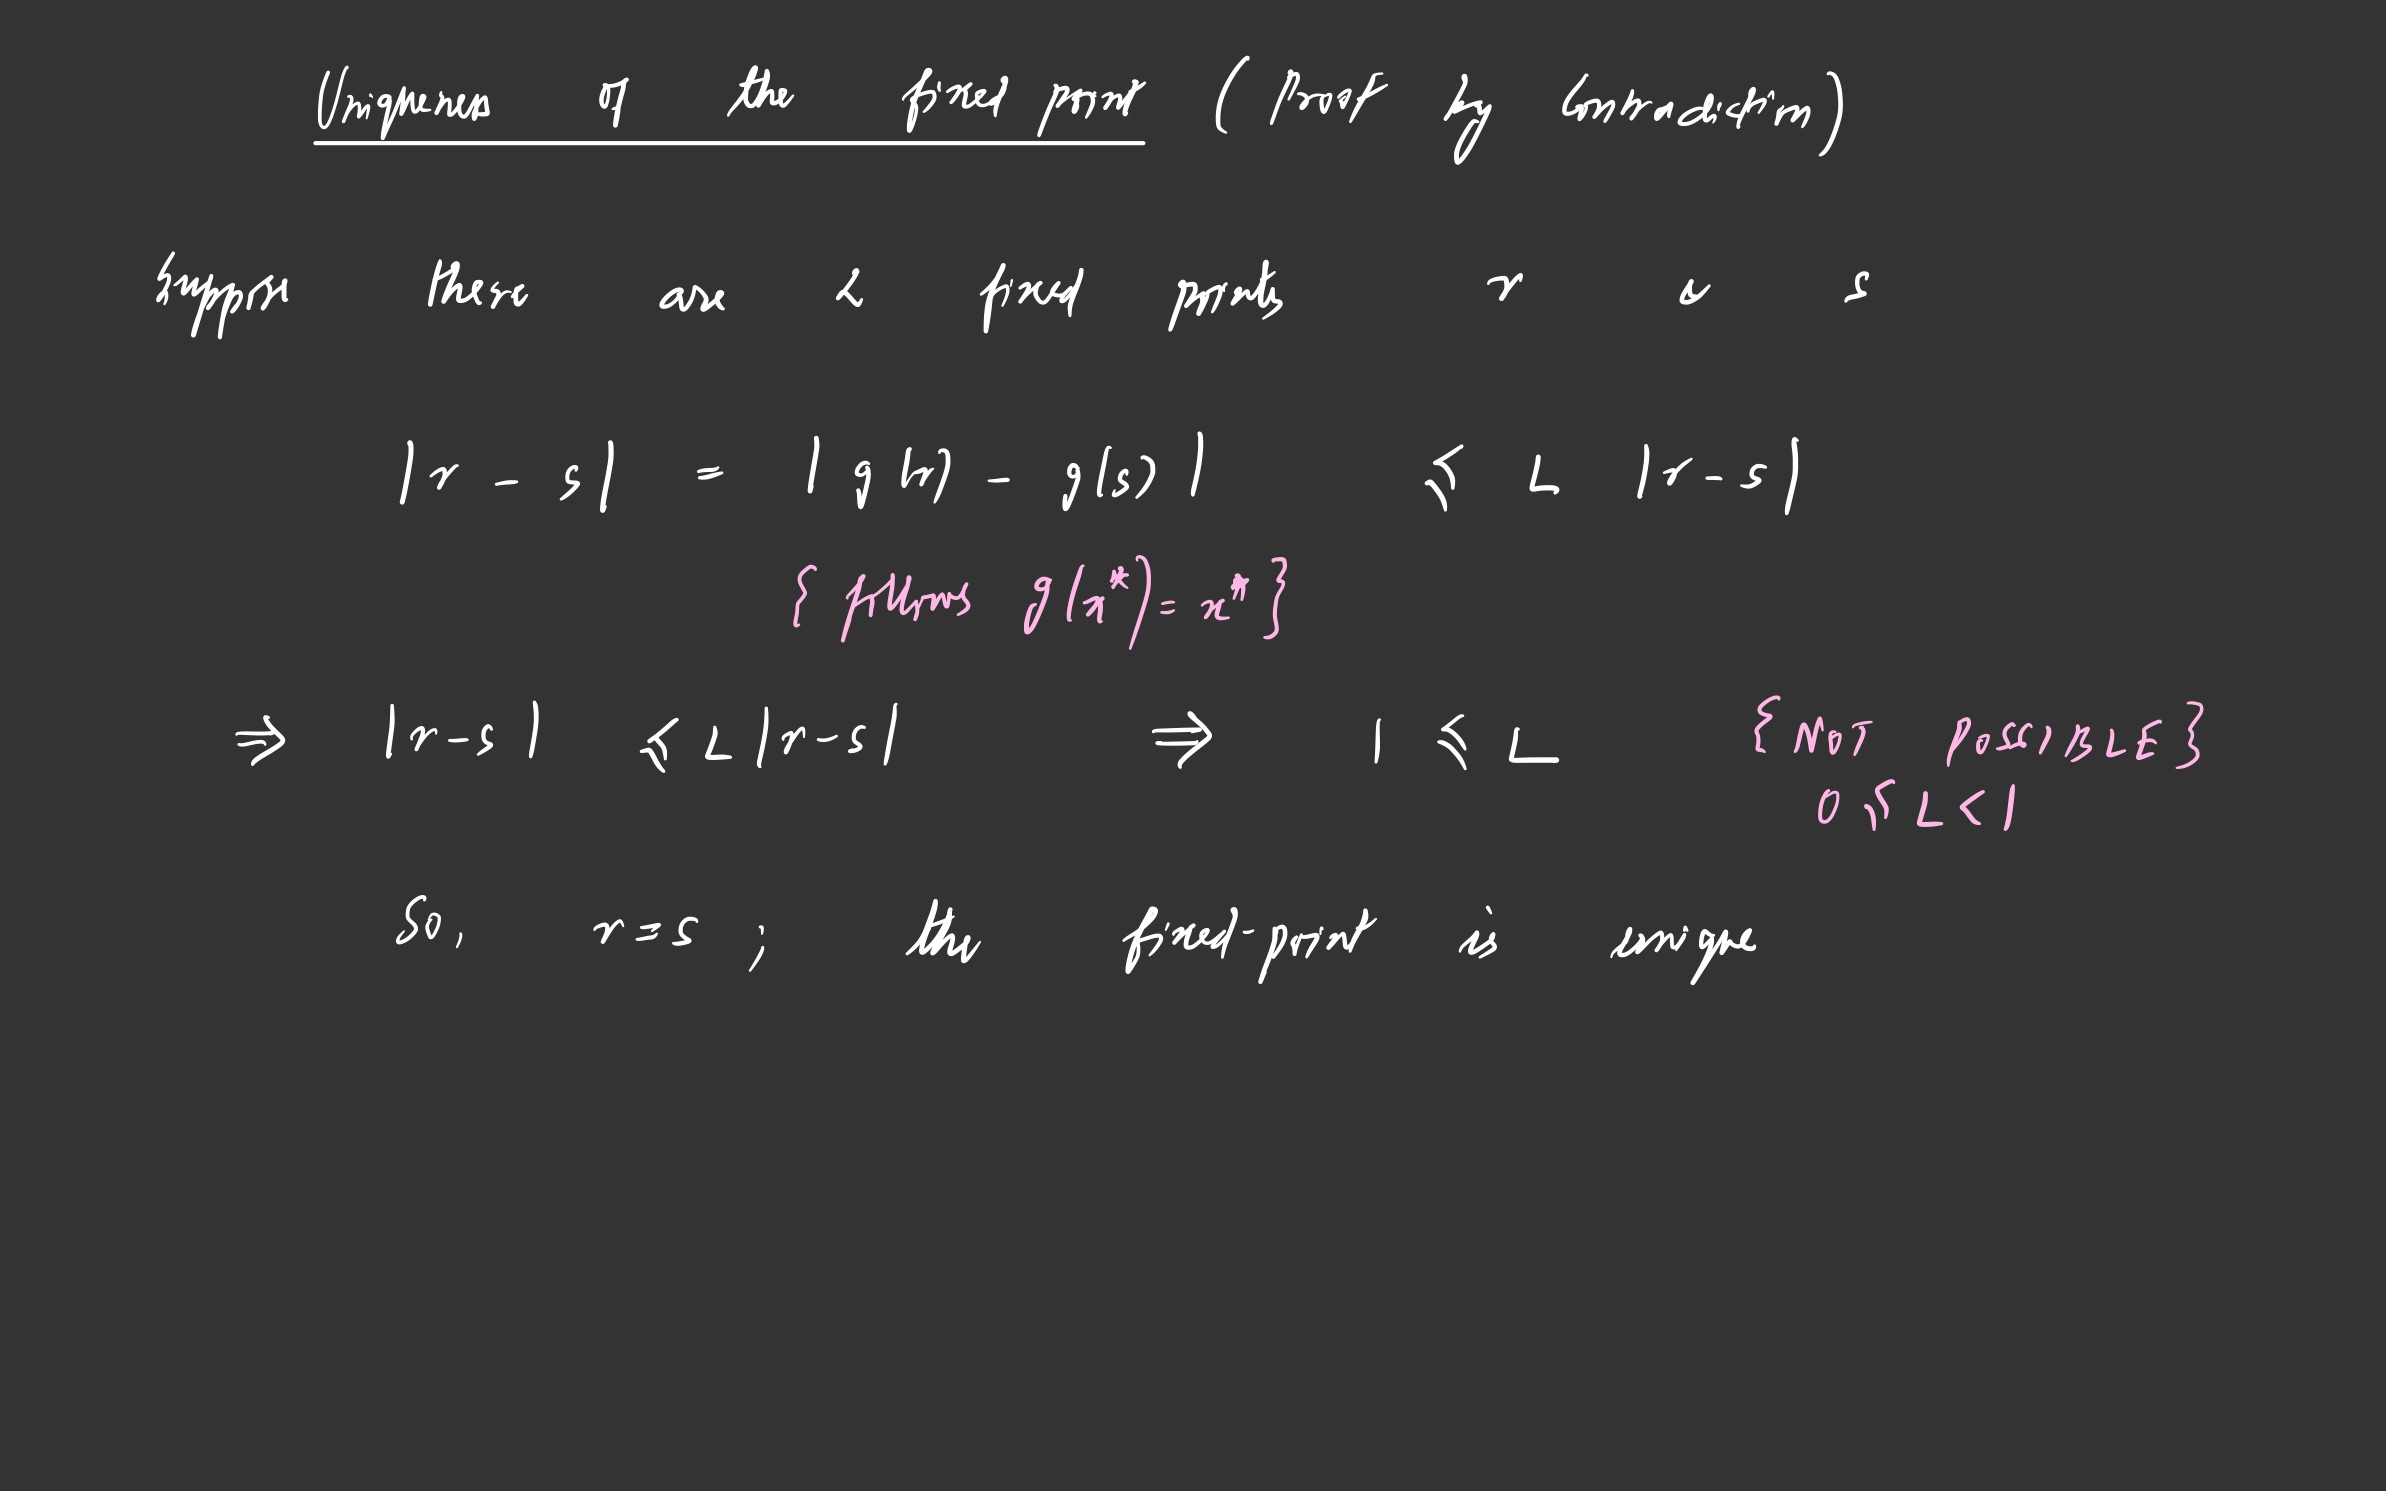 Uniqueness of the fixed point (Proof by Contradiction)
Suppose there are 2 fixed points r & s
|r - s| = |g(r) - g(s)| ⩽ L |r - s|
{ follows g(x*) = x* }
⇒ |r - s| ⩽ L |r - s| ⇒ 1 ⩽ L { NOT POSSIBLE }
0 ⩽ L < 1
So, r = s ; the fixed-point is unique